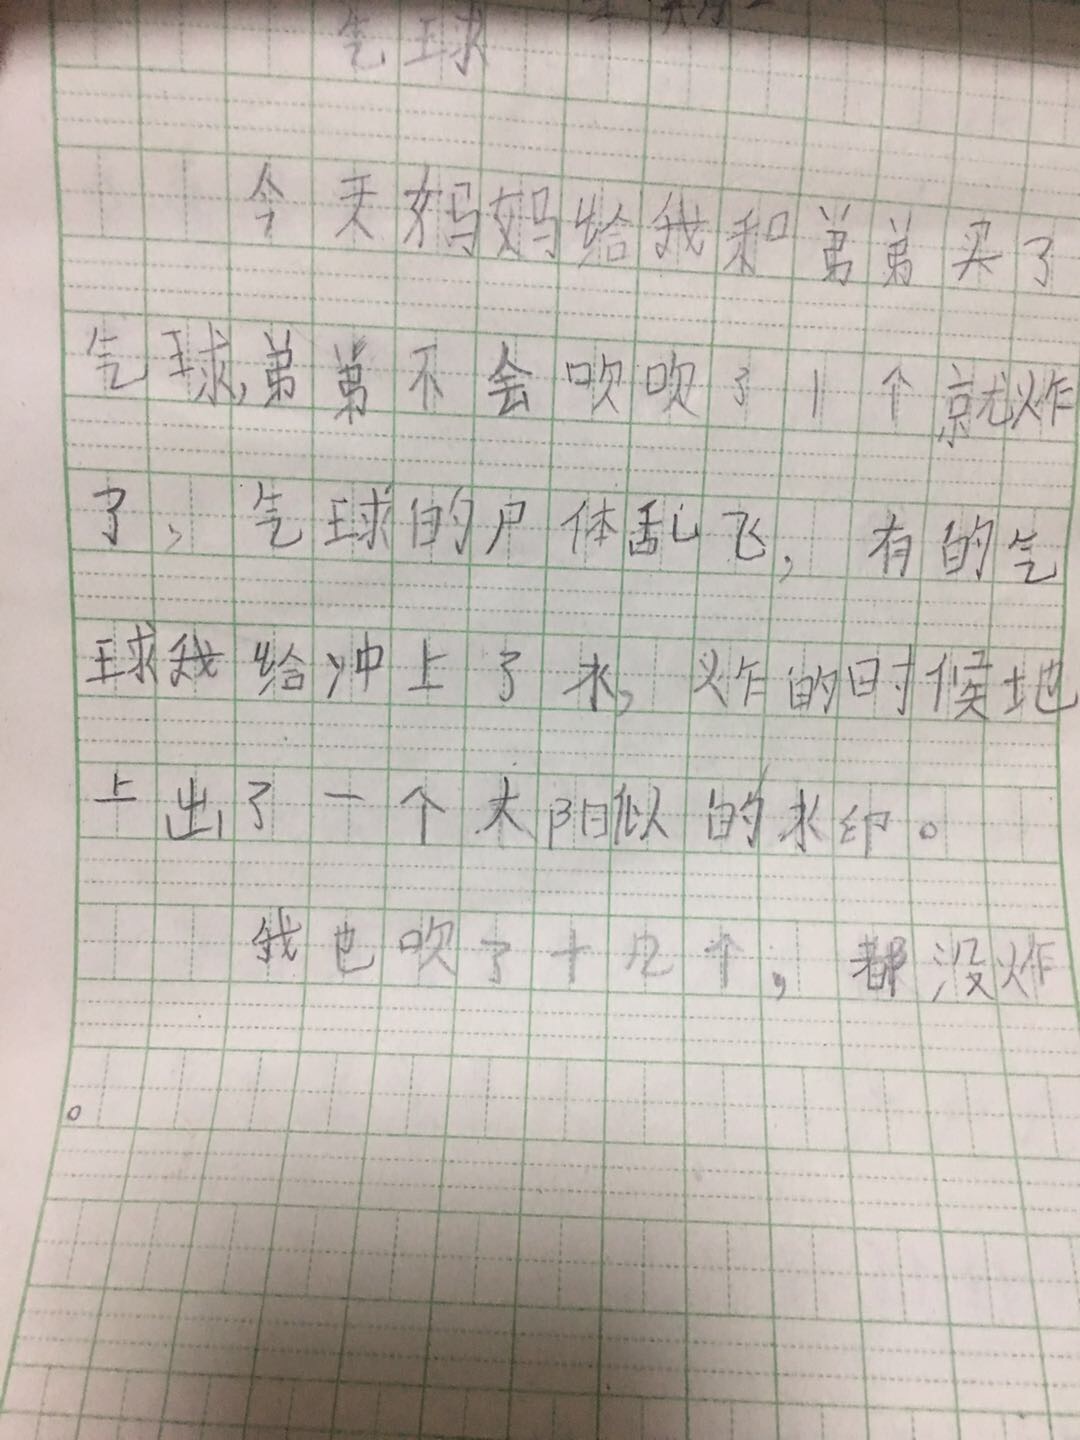 气球
今天妈妈给我和弟弟买了
气球,弟弟不会吹吹了1个就炸
了,气球的尸体乱飞,有的气
球我给冲上了水,炸的时候地
上出了一个太阳似的水印。
我也吹了十几个,都没炸
。